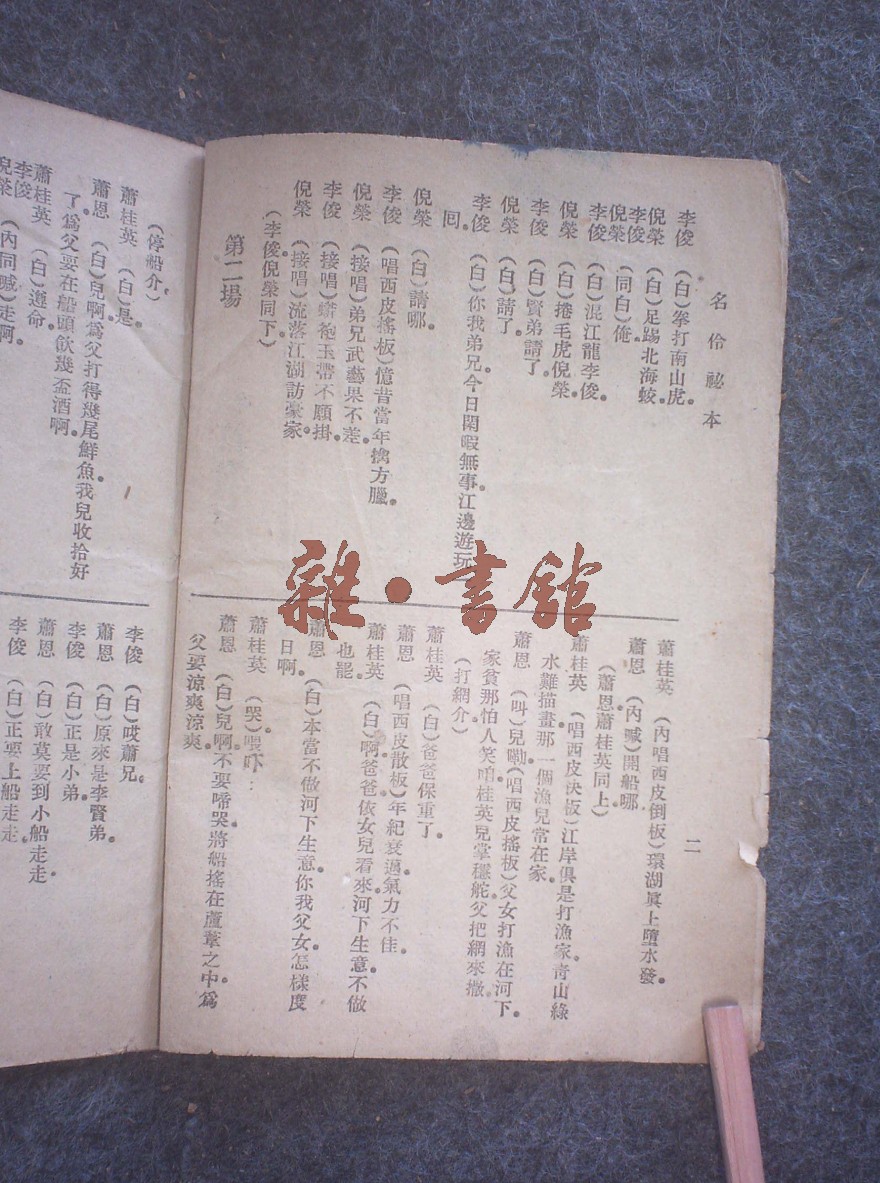 名伶祕本
李俊 (白)拳打南山虎。
倪榮 (白)足踢北海蛟。
李俊倪榮 (同白)俺。
李俊 (白)混江龍李俊。
倪榮 (白)捲毛虎倪榮。
李俊 (白)賢弟請了。
倪榮 (白)請了。
李俊 (白)你我弟兄。今日閑暇無事。江邊遊玩
回。
倪榮 (白)請哪。
李俊 (唱西皮搖板)憶昔當年擒方臘。
倪榮 (接唱)弟兄武藝果不差。
李俊 (接唱)蟒袍玉帶不願掛。
倪榮 (接唱)流落江湖訪豪家。
(李俊倪榮同下)
第二場
二
蕭桂英 (內唱西皮倒板)環湖眞上墮水發
蕭恩 (內喊)開船哪
(蕭恩蕭桂英同上)
蕭桂英 (唱西皮快板)江岸俱是打漁家。靑山綠
水難描畫。那一個漁兒常在家。
蕭恩 (叫)兒嘞(唱西皮搖板)父女打漁在河下。
家貧那怕人笑咱。桂英兒掌穩舵。父把網來撒。
(打網介)
蕭桂英 (白)爸爸保重了。
蕭恩 (唱西皮散板)年紀衰邁。氣力不佳。
蕭桂英 (白)啊。爸爸。依女兒看來。河下生意。不做
也罷。
蕭恩 (白)本當不做河下生意。你我父女。怎樣度
日啊。
蕭桂英 (哭)喂吓…
蕭恩 (白)兒啊。不要啼哭。將船搖在蘆葦之中。爲
父要涼爽涼爽。
(停船介)
蕭桂英 (白)是。
蕭恩 (白)兒啊。爲父打得幾尾鮮魚。我兒收拾好
了。爲父要在船頭飮幾盃酒啊。
蕭桂英 (白)遵命。
李俊倪榮 (內同喊)走啊。
李俊 (白)哎蕭兄。
蕭恩 (白)原來是李賢弟。
李俊 (白)正是小弟。
蕭恩 (白)敢莫要到小船走走。
李俊 (白)正要上船走走。
雜·書館